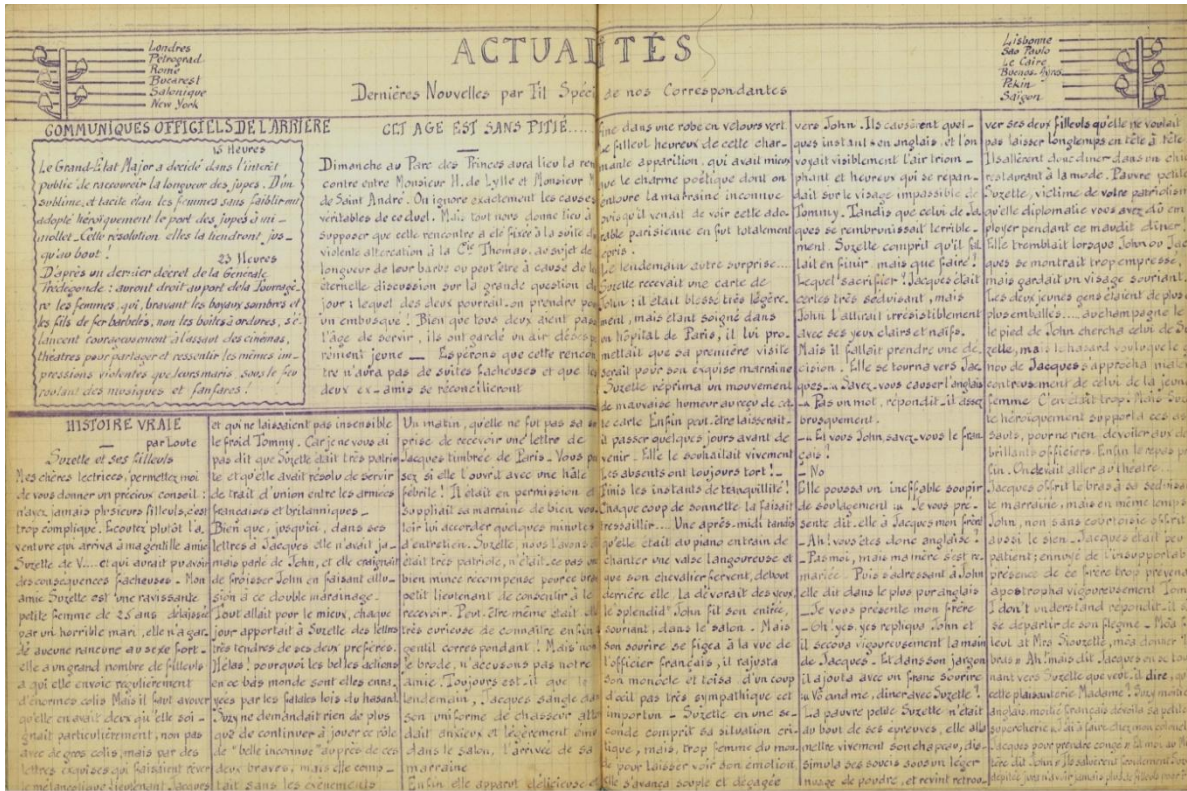 Londres
Pétrograd
Rome
Bucarest
Salonique
New York
ACTUALITÉS
Dernières Nouvelles par Fil Spécial de nos Correspondantes
Lisbonne
Sao Paulo
Le Caire
Buenos-Ayres
Pékin
Saïgon
COMMUNIQUES OFFICIELS DE L'ARRIÈRE
15 Heures
Le Grand-Etat Major a décidé dans l'intérêt
public de raccourcir la longueur des jupes. D'un
sublime, et tacite élan les femmes sans faiblir ont
adopté héroïquement le port des jupes à mi-
mollet. Cette résolution elles la tiendront jus-
qu'au bout !
23 Heures
D'après un dernier décret de la Générale
Frédégonde : auront droit au port de la fourragè-
re les femmes, qui, bravant les boyaux sombres et
les fils de fer barbelés, non les boîtes à ordures, s'é-
lancent courageusement à l'assaut des cinémas,
théatres pour partager et ressentir les mêmes im-
pressions violentes que leurs maris, sous le feu
roulant des musiques et fanfares !
CET AGE EST SANS PITIÉ.....
Dimanche au Parc des Princes aura lieu la ren
contre entre Monsieur H. de Lylle et Monsieur
de Saint André. On ignore exactement les causes
véritables de ce duel. Mais tout nous donne lieu à
supposer que cette rencontre a été fixée à la suite d
violente altercation à la Cie Thomas, au sujet de
longueur de leur barbe ou peut être à cause de l
éternelle discussion sur la grande question d
jour : lequel des deux pourrait-on prendre po
un embusqué ! Bien que tous deux aient pas
l'âge de servir, ils ont gardé un air désesp
rément jeune — Espérons que cette rencon
tre n'aura pas de suites facheuses et que l
deux ex-amis se réconcilieront
HISTOIRE VRAIE
par Loute
Suzette et ses filleuls
Mes chères lectrices, permettez moi
de vous donner un précieux conseil :
n'ayez jamais plusieurs filleuls, c'est
trop compliqué. Ecoutez plutôt l'a-
venture qui arriva à ma gentille amie
Suzette de V.... et qui aurait pu avoir
des conséquences facheuses - Mon
amie Suzette est une ravissante
petite femme de 25 ans délaissée
par un horrible mari, elle n'a gar-
dé aucune rancune au sexe fort -
elle a un grand nombre de filleuls
a qui elle envoie régulièrement
d'énormes colis Mais il faut avouer
qu'elle en avait deux qu'elle soi-
gnait particulièrement, non pas
avec de gros colis, mais par des
lettres exquises qui faisaient rêver
le mélancolique lieutenant Jacques
et qui ne laissaient pas insensible
le froid Tommy. Car je ne vous ai
pas dit que Suzette était très patrio
te et qu'elle avait résolu de servir
de trait d'union entre les armées
françaises et britanniques -
Bien que, jusqu'ici, dans ses
lettres à Jacques elle n'avait ja-
mais parlé de John, et elle craignait
de froisser John en faisant allu-
sion à ce double marainage.
Tout allait pour le mieux, chaque
jour apportait à Suzette des lettres
très tendres de ses deux préférés.
Hélas ! pourquoi les belles actions
en ce bas monde sont elles enra-
yées par les fatales lois du hasard
Suzy ne demandait rien de plus
que de continuer à jouer ce rôle
de "belle inconnue" auprès de ces
deux braves, mais elle comp-
tait sans les évènements
Un matin, qu'elle ne fut pas sa s
prise de recevoir une lettre de
Jacques timbrée de Paris. Vous p
sez si elle l'ouvrit avec une hâte
fébrile ! Il était en permission e
suppliait sa marraine de bien vou
loir lui accorder quelques minutes
d'entretien. Suzette, nous l'avons
était très patriote, n'était-ce pas u
bien mince récompense pour ce bra
petit lieutenant de consentir à le
recevoir. Peut-être même était-elle
très curieuse de connaître enfin
gentil correspondant ! Mais non
je brode, n'accusons pas notre
amie. Toujours est-il que le
lendemain, Jacques sanglé da
son uniforme de chasseur att
dait anxieux et légèrement ému
dans le salon, l'arrivée de sa
marraine
Enfin elle apparut délicieuse e
fine dans une robe en velours vert.
Le filleul heureux de cette char-
mante apparition, qui avait mieux
que le charme poétique dont on
entoure la marraine inconnue
puisqu'il venait de voir cette ado-
rable parisienne en fut totalement
épris.
Le lendemain autre surprise....
Suzette recevait une carte de
John : il était blessé très légère-
ment, mais étant soigné dans
un hôpital de Paris, il lui pro-
mettait que sa première visite
serait pour son exquise marraine
Suzette réprima un mouvement
de mauvaise humeur au reçu de cet-
te carte Enfin peut-être laisserait-
il passer quelques jours avant de
venir - Elle le souhaitait vivement
Les absents ont toujours tort ! -
Finis les instants de tranquillité !
Chaque coup de sonnette la faisait
tressaillir.... Une après-midi tandis
qu'elle était au piano entrain de
chanter une valse langoureuse et
que son chevalier fervent, debout
derrière elle la dévorait des yeux
le "splendid" John fit son entrée,
souriant, dans le salon. - Mais
son sourire se figea à la vue de
l'officier français, il rajusta
son monocle et toisa d'un coup
d'œil pas très sympathique cet
importun - Suzette en une se-
conde comprit sa situation cri-
tique, mais, trop femme du mon
de pour laisser voir son émotion
elle s'avança souple et dégagée
vers John. Ils causèrent quel-
ques instants en anglais, et l'on
voyait visiblement l'air triom-
phant et heureux qui se répan-
dait sur le visage impassible de
Tommy. Tandis que celui de Ja-
cques se rembrunissait terrible-
ment. Suzette comprit qu'il fal
lait en finir, mais que faire !
Lequel sacrifier ! Jacques était
certes très séduisant, mais
John l'attirait irrésistiblement
avec ses yeux clairs et naïfs.
Mais il fallait prendre une dé-
cision ! Elle se tourna vers Jac-
ques. - Savez-vous causer l'anglais
- Pas un mot, répondit-il assez
brusquement.
- Et vous John, savez-vous le fran-
çais !
- No
Elle poussa un ineffable soupir
de soulagement - Je vous pré-
sente dit-elle à Jacques mon frère
- Ah ! vous êtes donc anglaise !
- Pas moi, mais ma mère s'est re-
mariée - Puis s'adressant à John
elle dit dans le plus pur anglais
- Je vous présente mon frère
- Oh ! yes, yes répliqua John et
il secoua vigoureusement la main
de Jacques. Et dans son jargon
il ajouta avec un franc sourire
- Vô and me, diner avec Suzette !
La pauvre petite Suzette n'était
au bout de ses épreuves, elle alla
mettre vivement son chapeau, dis-
simula ses soucis sous un léger
nuage de poudre, et revint retrou-
ver ses deux filleuls qu'elle ne voulait
pas laisser longtemps en tête à tête
Ils allèrent donc diner dans un chic
restaurant à la mode. Pauvre petite
Suzette, victime de votre patriotism
qu'elle diplomatie vous avez dû em
ployer pendant ce maudit diner !
Elle tremblait lorsque John ou Jac
ques se montrait trop empressé,
mais gardait un visage souriant.
Les deux jeunes gens étaient de plus
plus emballés.... au champagne le
le pied de John chercha celui de Su
zette, mais le hasard voulut que le g
nou de Jacques s'approcha malen
contreusement de celui de la jeune
femme C'en était trop. Mais Suz
te héroïquement supporta ces as
sauts, pour ne rien dévoiler aux de
brillants officiers. Enfin le repas pr
fin. On devait aller au théatre...
Jacques offrit le bras à sa séduisan
te marraine, mais en même temps
John, non sans courtoisie offrit
aussi le sien - Jacques était peu
patient ; ennuyé de l'insupportab
présence de ce frère trop prévena
apostropha vigoureusement Tom
I don't understand répondit-il s
se départir de son flegme - Môa f
leul at Mrs Siouzette, môa donner
bras » Ah ! mais dit Jacques en se tour
nant vers Suzette que veut-il dire, qu
cette plaisanterie Madame ! Suzy moitié
anglais moitié français dévoila sa petite
supercherie